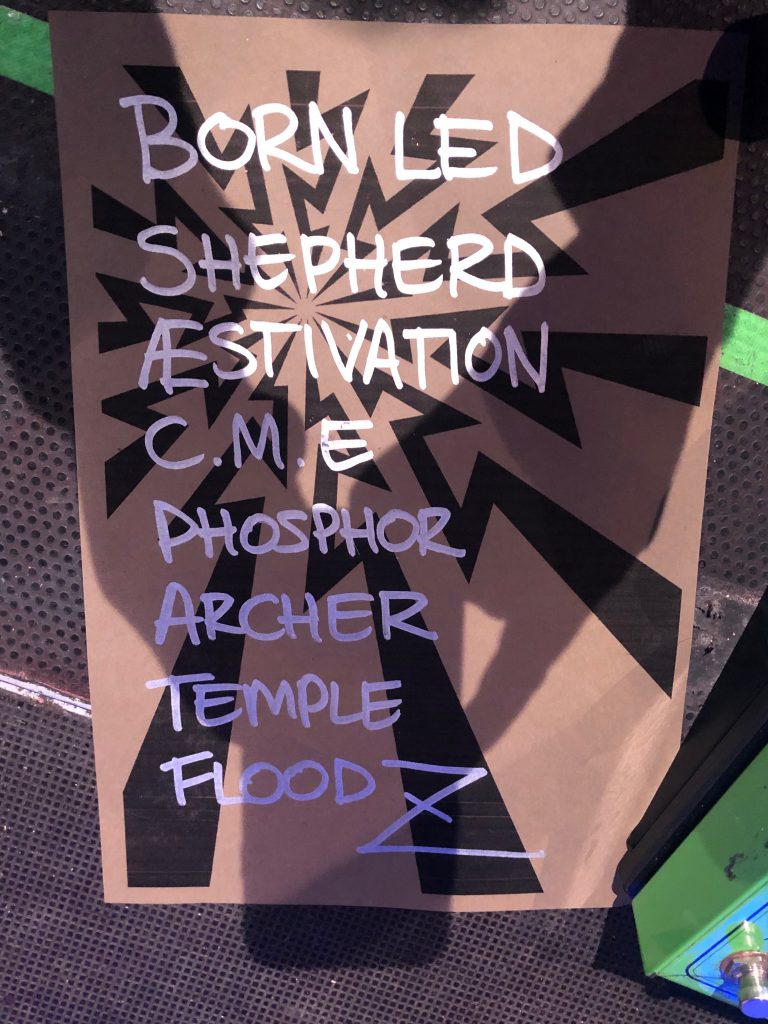 BORN LED
SHEPHERD
ÆSTIVATION
C.M.E
PHOSPHOR
ARCHER
TEMPLE
FLOOD Z